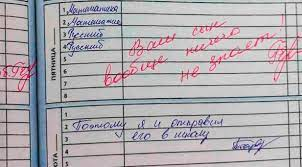 ПЯТНИЦА
1 Математика
2 Математика
3 Русский
4 Русский
5
6
7
8
Ваш сын
вообще ничего
не знает!
1
2 Поэтому я и отправил
3 его в школу
4
5
6